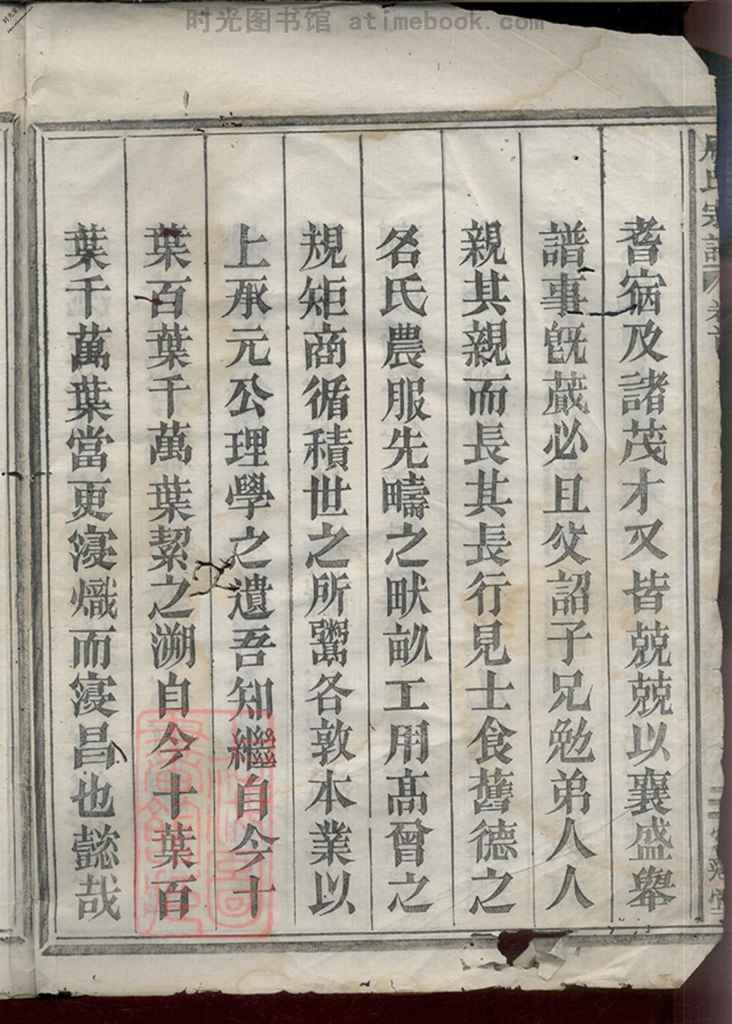 时光图书馆 atimebook.com
耆宿及諸茂才又皆兢兢以襄盛舉
譜事旣蕆必且父詔子兄勉弟人人
親其親而長其長行見士食舊德之
名氏農服先疇之畎畝工用高曾之
規矩商循積世之所鬻各敦本業以
上承元公理學之遺吾知繼自今十
葉百葉千萬葉絜之溯自今十葉百
葉千萬葉當更寖熾而寖昌也懿哉